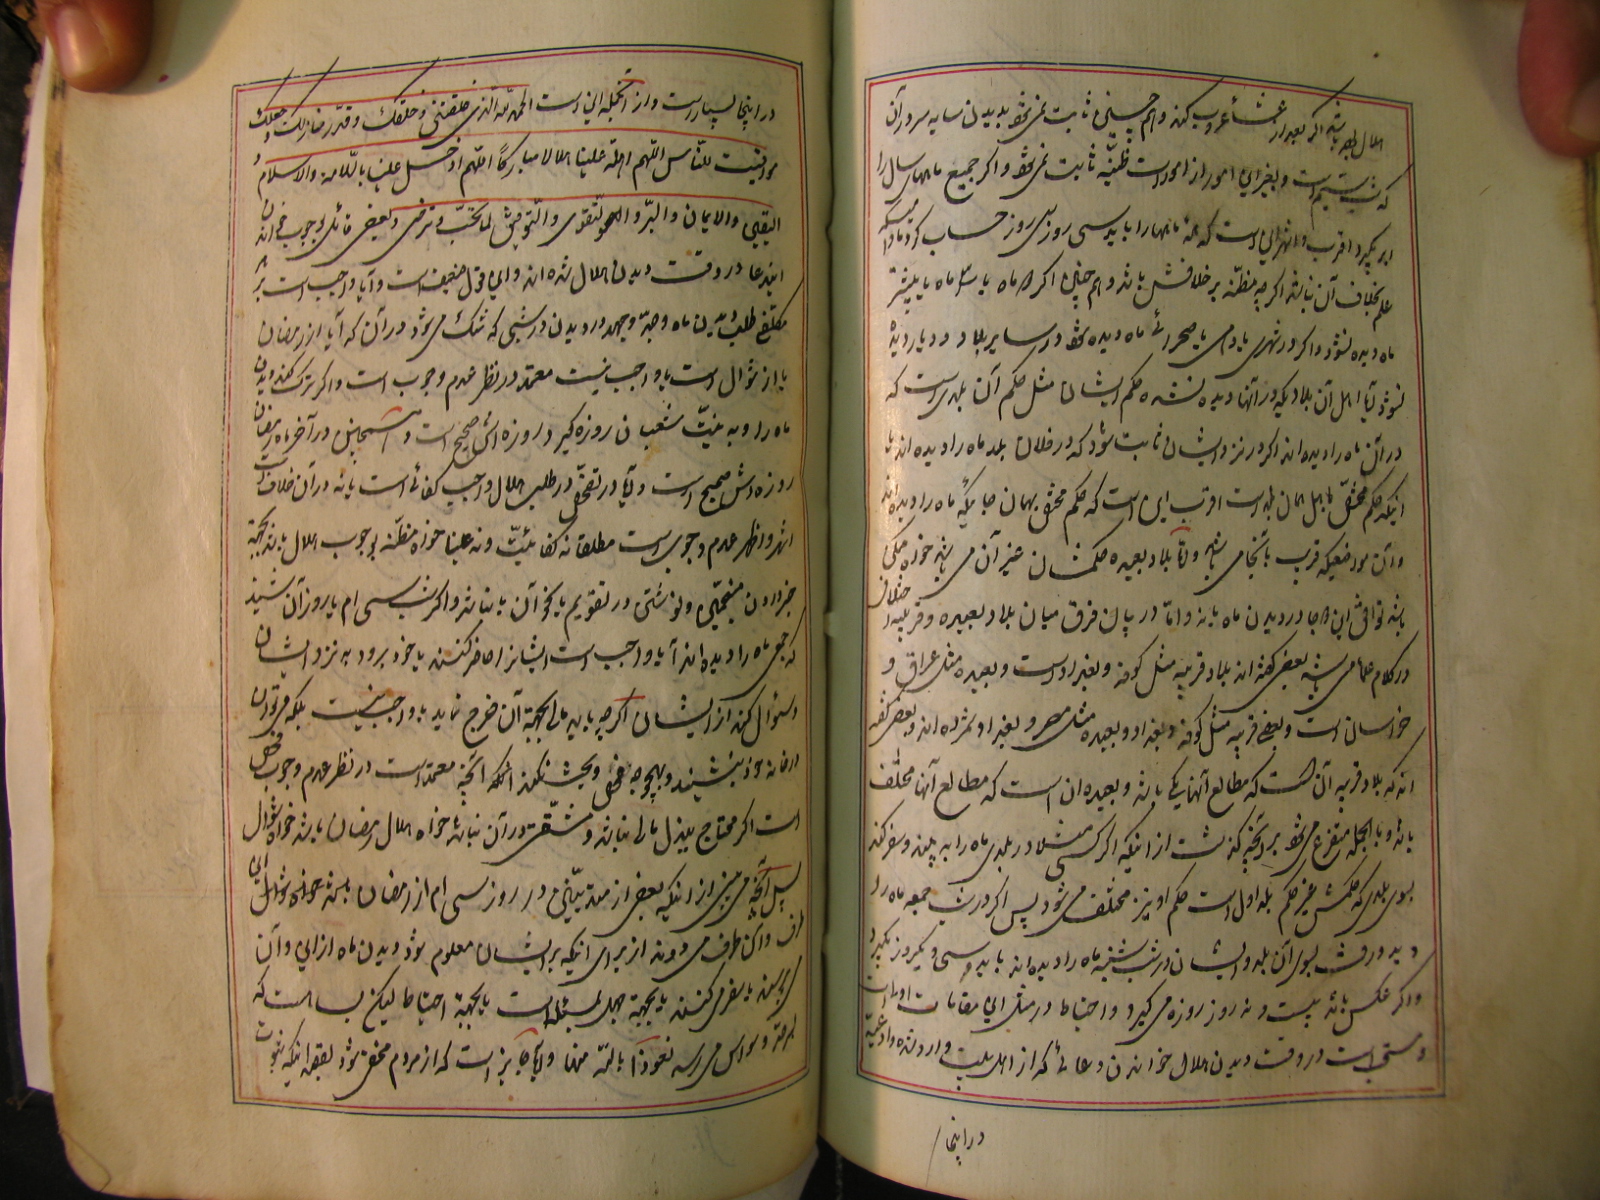 هلال ظاهر باشد اگر بعد از عشا غروب کند و هم چنین ثابت نمی‌شود بدیدن سایه سر در آن
که شب سیم است و بغیر این امور از امورات ظنیه ثابت نمی‌شود و اگر جمیع ماههای سال را
ابر بگیرد اقرب و اشهر این است که همه ماهها را باید سی روز سی روز حساب کرد مادامیکه
علم بخلاف آن نباشد اگر چه مظنه بر خلافش باشد و هم چنین اگر ماه یا ماه یا بیشتر
ماه دیده نشود و اگر در شهری یا دهی یا صحرائی ماه دیده شود و در سایر بلاد و دیار دیده
نشود آیا اهل آن بلاد که در آنها دیده نشده حکم ایشان مثل حکم آن بلدی است که
در آن ماه را دیده‌اند اگر در نزد ایشان ثابت شود که در فلان بلد ماه را دیده‌اند یا
اینکه حکم مختص باهل همان بلد است اقرب این است که حکم مختص بهمان جائیکه ماه را دیده‌اند
و آن مواضعیکه قریب بآنجا می باشد و اما بلاد بعیده حکمشان غیر آن می باشد خواه ممکن
باشد توافق این جا در دیدن ماه یا نه و اما در بیان فرق میان بلاد بعیده و قریبه خلاف
در کلام علما می باشد بعضی گفته‌اند بلاد قریبه مثل کوفه و بغداد است و بعیده مثل عراق و
خراسان است و بعضی قریبه مثل کوفه و بغداد و بعیده مثل مصر و بغداد شمرده‌اند و بعضی گفته
اند که بلاد قریبه آن است که مطالع آنها یکی باشد و بعیده آن است که مطالع آنها مختلف
باشد و بالجمله متفرع می‌شود بر آنچه گذشت از اینکه اگر کسی مثلا در بلدی ماه را به بیند و سفر کند
بسوی بلدی که حکمش غیر حکم بلد اول است حکم او نیز مختلف می‌شود پس اگر در شب جمعه ماه را
دید و رفت بسوی آن بلد و ایشان در شب شنبه ماه را دیده‌اند باید سی و یکروز بگیرد
و اگر عکس باشد بیست و نه روز روزه می‌گیرد و احتیاط در مثل این مقامات اولی است
و مستحب است در وقت دیدن هلال خواندن دعائی که از اهل بیت وارد شده و ادعیه
در اینجا
در اینجا بسیار است و از آنجمله این است الحمد لله الذی خلقنی و خلقک و قدر منازلک و جعلک
مواقیت للناس اللهم اهله علینا هلالا مبارکا اللهم ادخله علینا بالسلامة والاسلام و
الیقین والایمان والبر والتقوی والتوفیق لما تحب و ترضی و بعضی قائل بوجوب خواندن
این دعا در وقت دیدن هلال شده‌اند و این قول ضعیف است و آیا واجب است بر
مکلف طلب دیدن ماه و جد و جهد در دیدن در شبی که شک می‌شود در آن که آیا از رمضان
یا از شوال است یا واجب نیست معتمد در نظر عدم وجوب است و اگر ترک کند دیدن
ماه را و به نیت شعبان روزه گیرد روزه اش صحیح است و همچنین در آخر ماه رمضان
روزه اش صحیح است و آیا در تفحص در طلب هلال واجب کفائی است یا نه در آن خلاف است
اشهر و اظهر عدم وجوب است مطلقا نه کفائیت و نه علینا خواه مظنه بوجوب هلال باشد بجهة
خبر دادن منجمین و نوشتن در تقویم یا نحو آن یا نباشد و اگر شب سی ام یا روز آن شنید
که جمعی ماه را دیده‌اند آیا واجب است ایشانرا حاضر کنند یا خود برود به نزد ایشان
و سئوال کند از ایشان اگر چه باید مالی بجهة آن خرج نماید یا واجب نیست بلکه می‌تواند
در خانه خود بنشیند و بهیچوجه فحص و بحث نکند آنچه معتمد است در نظر عدم وجوب فحص
است اگر محتاج ببذل مال نباشد و مشقتی در آن نباشد خواه هلال رمضان باشد خواه شوال
پس آنچه می بینی از اینکه بعضی از متدینین در روز سی ام از رمضان باین
طرف و آن طرف می دوند از برای اینکه بر ایشان معلوم شود دیدن ماه از این و آن
می‌پرسند یا سفر می کنند یا بجهة جهل بمسئله است یا بجهة احتیاط لیکن بسا است که
و سواس می رسد نعوذ بالله منها و آیا جایز است که از مردم مخفی شود بقصد اینکه ثبوت